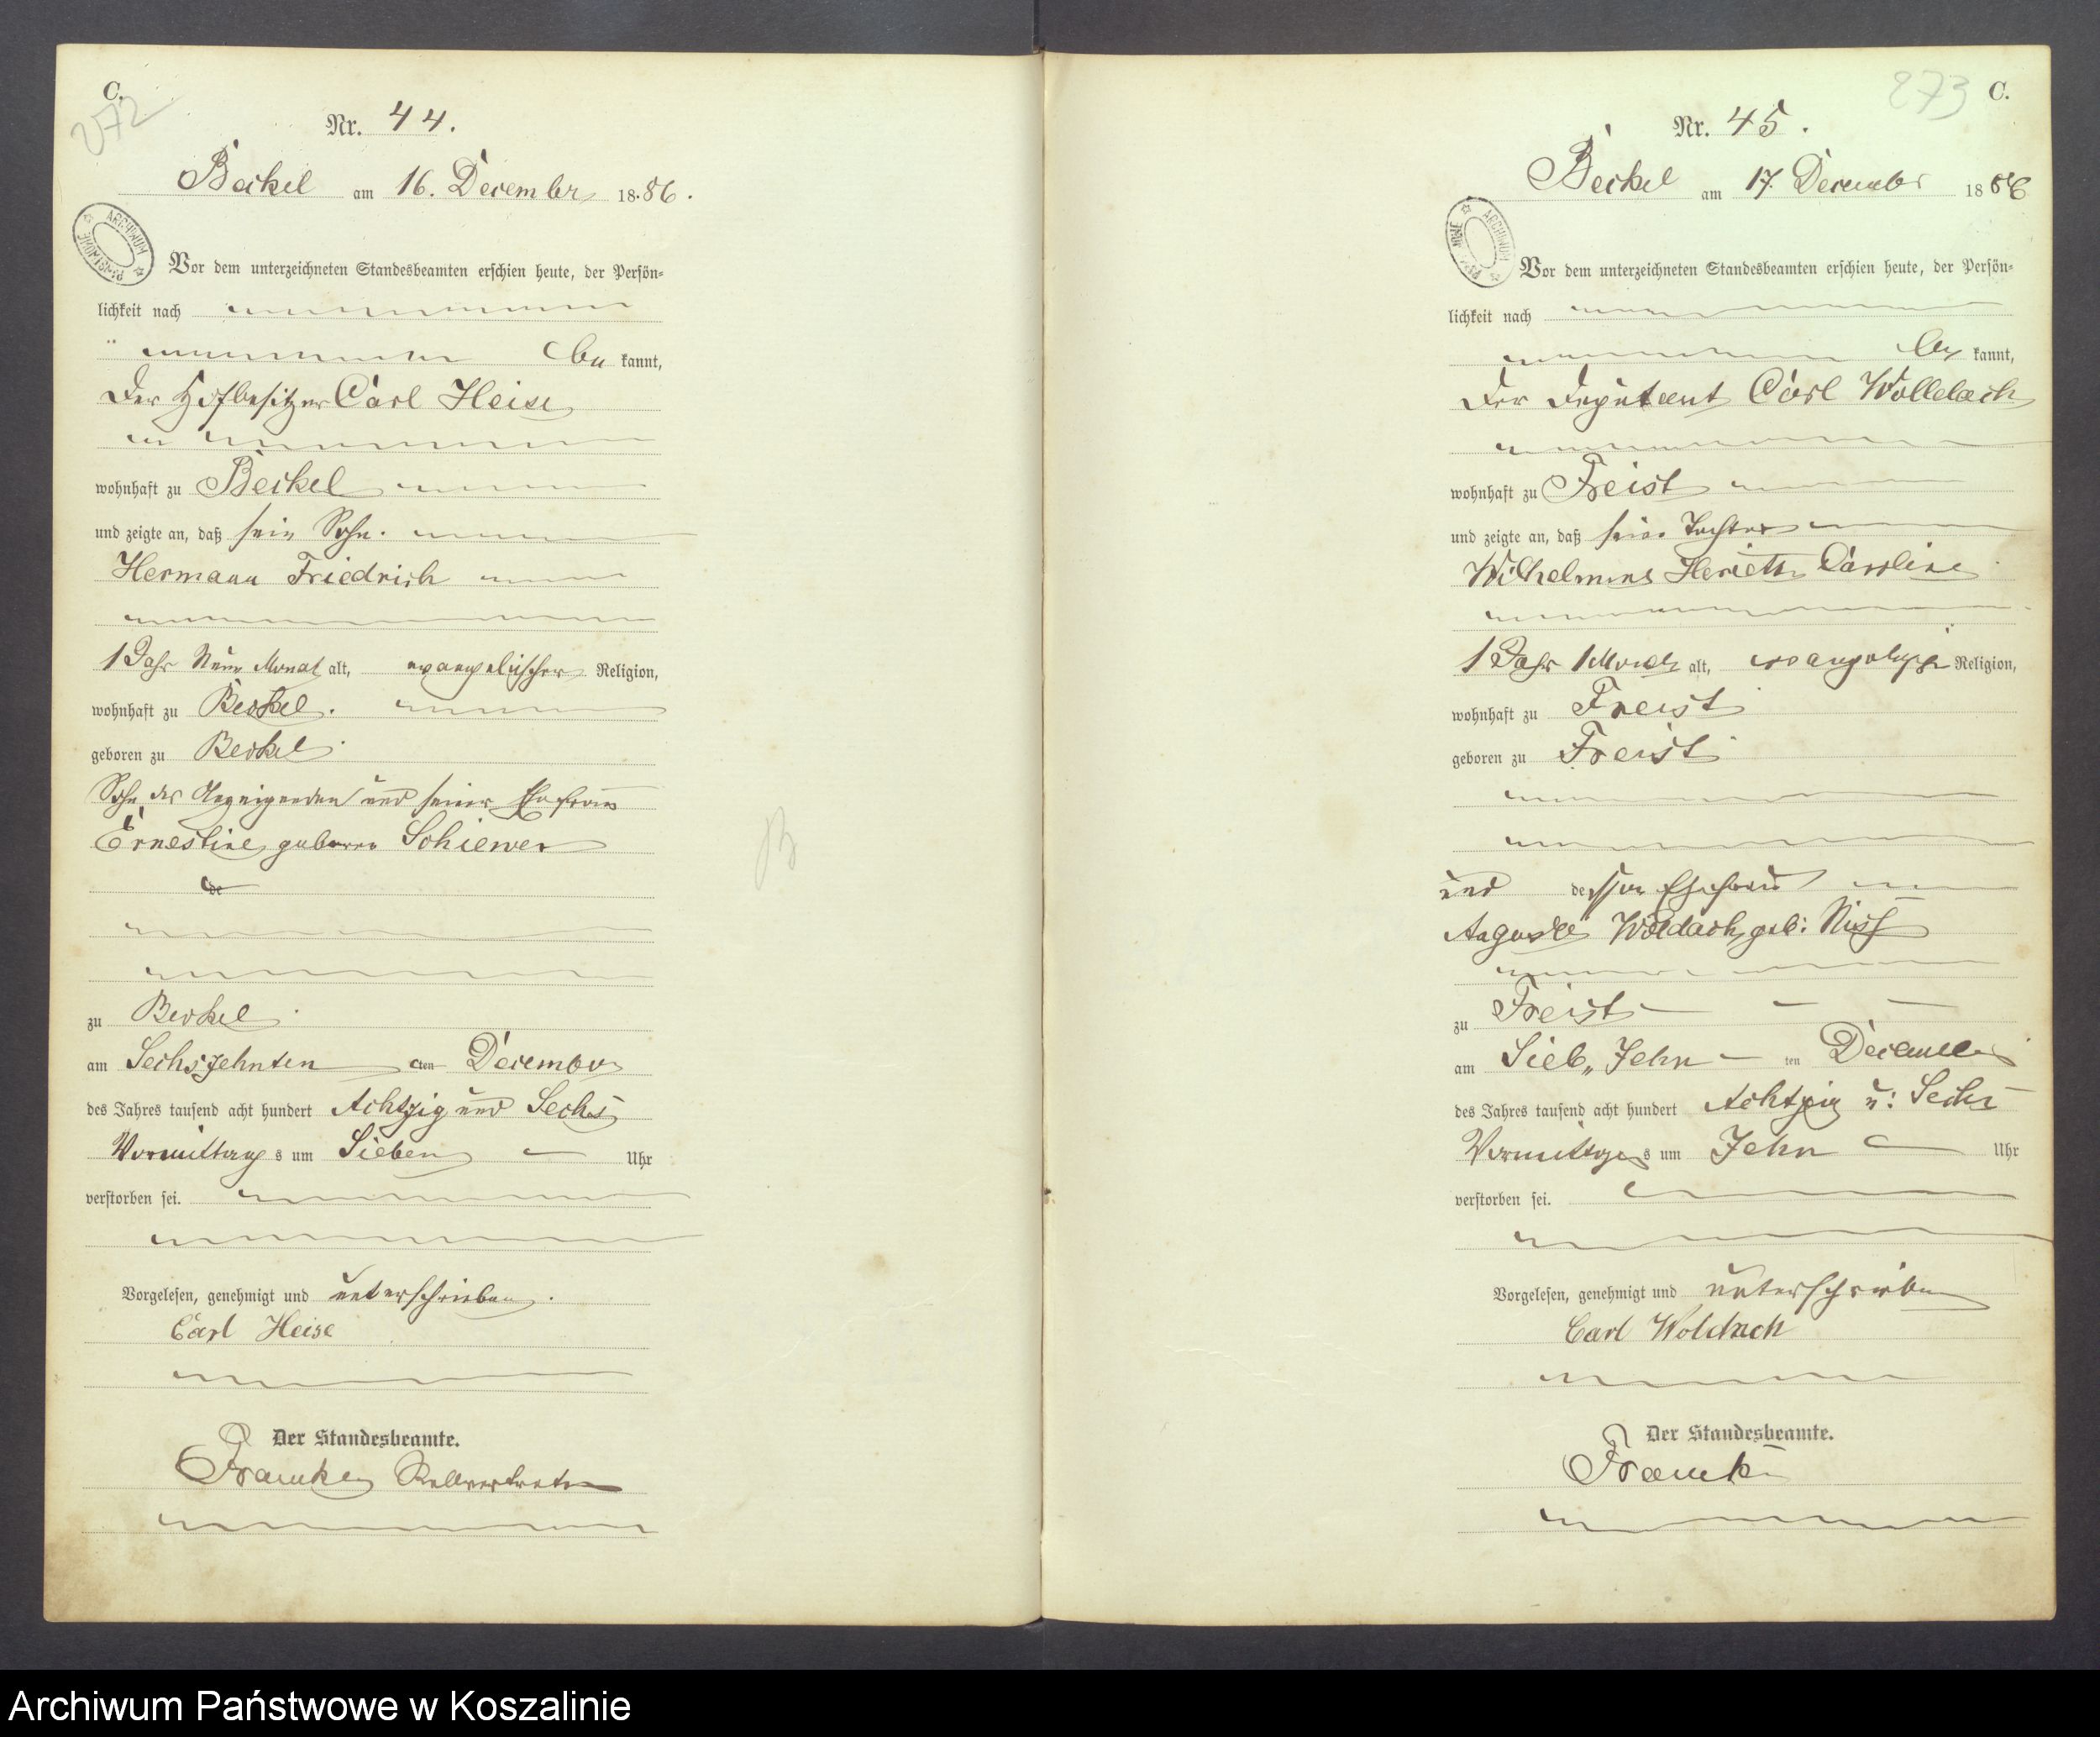 C.
272
Nr. 44.
Beckel am 16. December 1886.
ARCHIWUM PAŃSTWOWE
Vor dem unterzeichneten Standesbeamten erschien heute, der Persön-
lichkeit nach
be kannt,
der Hofbesitzer Carl Heise
wohnhaft zu Beckel
und zeigte an, daß sein Sohn.
Hermann Friedrich
1 Jahr Neun Monat alt, evangelischer Religion,
wohnhaft zu Beckel.
geboren zu Beckel.
Sohn des Anzeigenden und seiner Ehefrau
Ernestine geborene Schiewer
de
zu Beckel.
am Sechszehnten ten December
des Jahres tausend acht hundert Achtzig und Sechs
Vormittags um Sieben Uhr
verstorben sei.
Vorgelesen, genehmigt und unterschrieben.
Carl Heise
Der Standesbeamte.
Framke Stellvertreter
273 C.
Nr. 45.
Beckel am 17. December 1886
ARCHIWUM
Vor dem unterzeichneten Standesbeamten erschien heute, der Persön-
lichkeit nach
be kannt,
der Deputant Carl Wolldach
wohnhaft zu Freist
und zeigte an, daß seine Tochter
Wilhelmine Heriette Caroline
1 Jahr 1 Monat alt, evangelischer Religion,
wohnhaft zu Freist
geboren zu Freist
und dessen Ehefrau
Auguste Woldach, geb:
zu Freist
am Sieb„ Zehn ten December
des Jahres tausend acht hundert Achtzig u: Sechs
Vormittags um Zehn Uhr
verstorben sei.
Vorgelesen, genehmigt und unterschrieben
Carl Woldach
Der Standesbeamte.
Framke
Archiwum Państwowe w Koszalinie